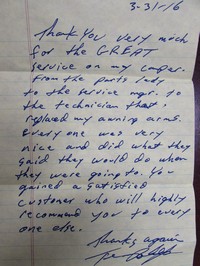 3-31-16
Thank You very much
for the GREAT
service on my camper.
From the parts lady
to the service mgr. to
the technician that
replaced my awning arms.
Every one was very
nice and did what they
said they would do when
they were going to. You
gained a satisfied
customer who will highly
recommend you to every
one else.
Thanks again